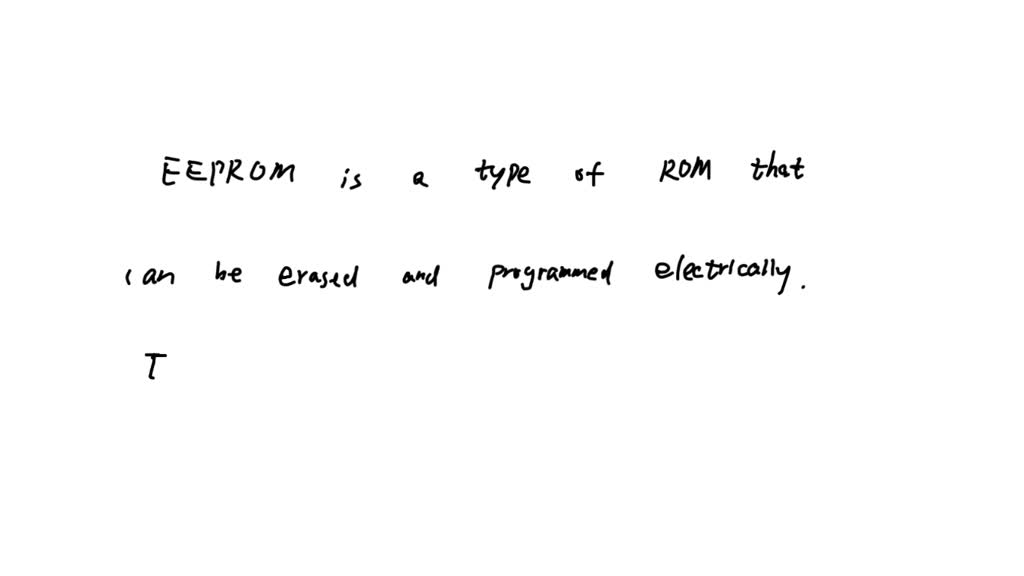 EEPROM is a type of ROM that
can be erased and programmed electrically.
T